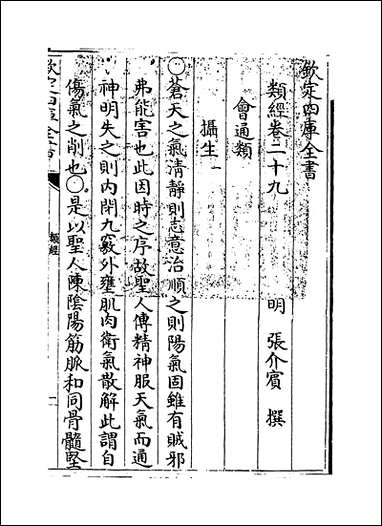 欽定四庫全書
類經卷二十九
明 張介賓 撰
會通類
攝生一
〇蒼天之氣清靜則志意治順之則陽氣固雖有賊邪
弗能害也此因時之序故聖人傳精神服天氣而通
神明失之則內閉九竅外壅肌肉衛氣散解此謂自
傷氣之削也〇是以聖人陳陰陽筋脈和同骨髓堅
欽定四庫全書
類經
一